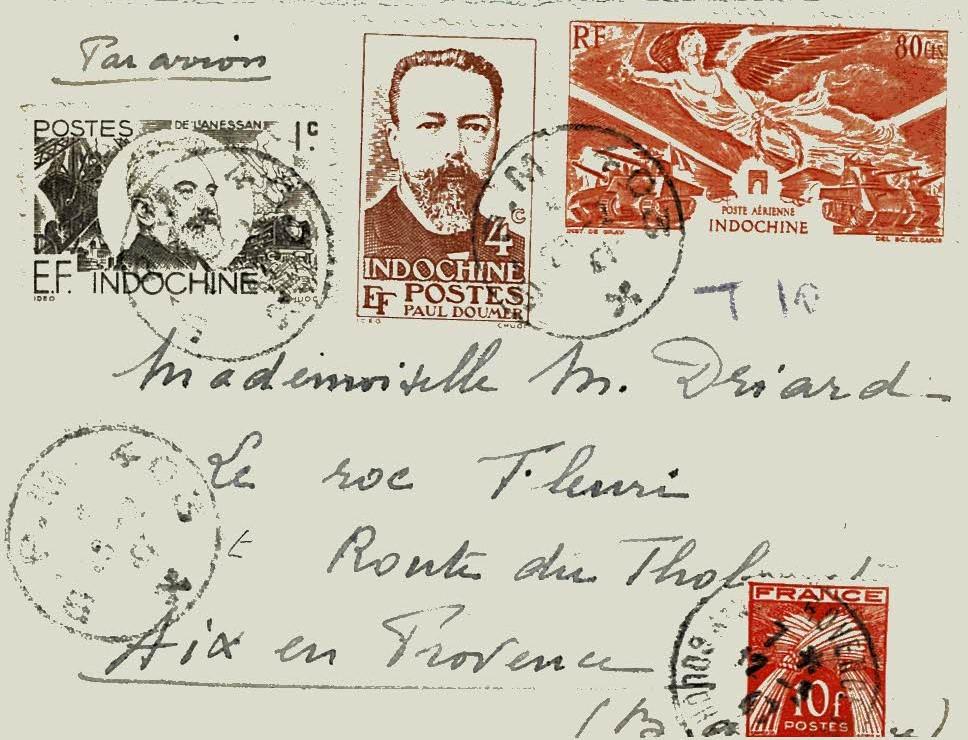 Par avion
POSTES
DE LANESSAN
1c
E.F. INDOCHINE
IDEO
4c
INDOCHINE
EF POSTES
PAUL DOUMER
IDEO
RF
80cts
POSTE AÉRIENNE
INDOCHINE
T 10
Mademoiselle M. Driard
Le roc Fleuri
Route du
Aix en Provence
FRANCE
10f
POSTES